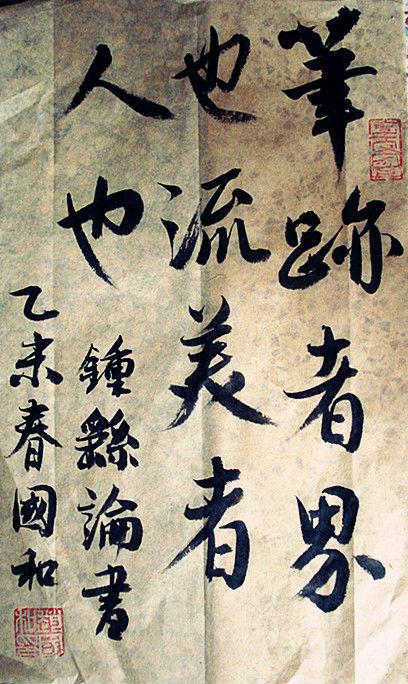 筆跡者界
也流美者
人也
鍾繇論書
乙未春國和